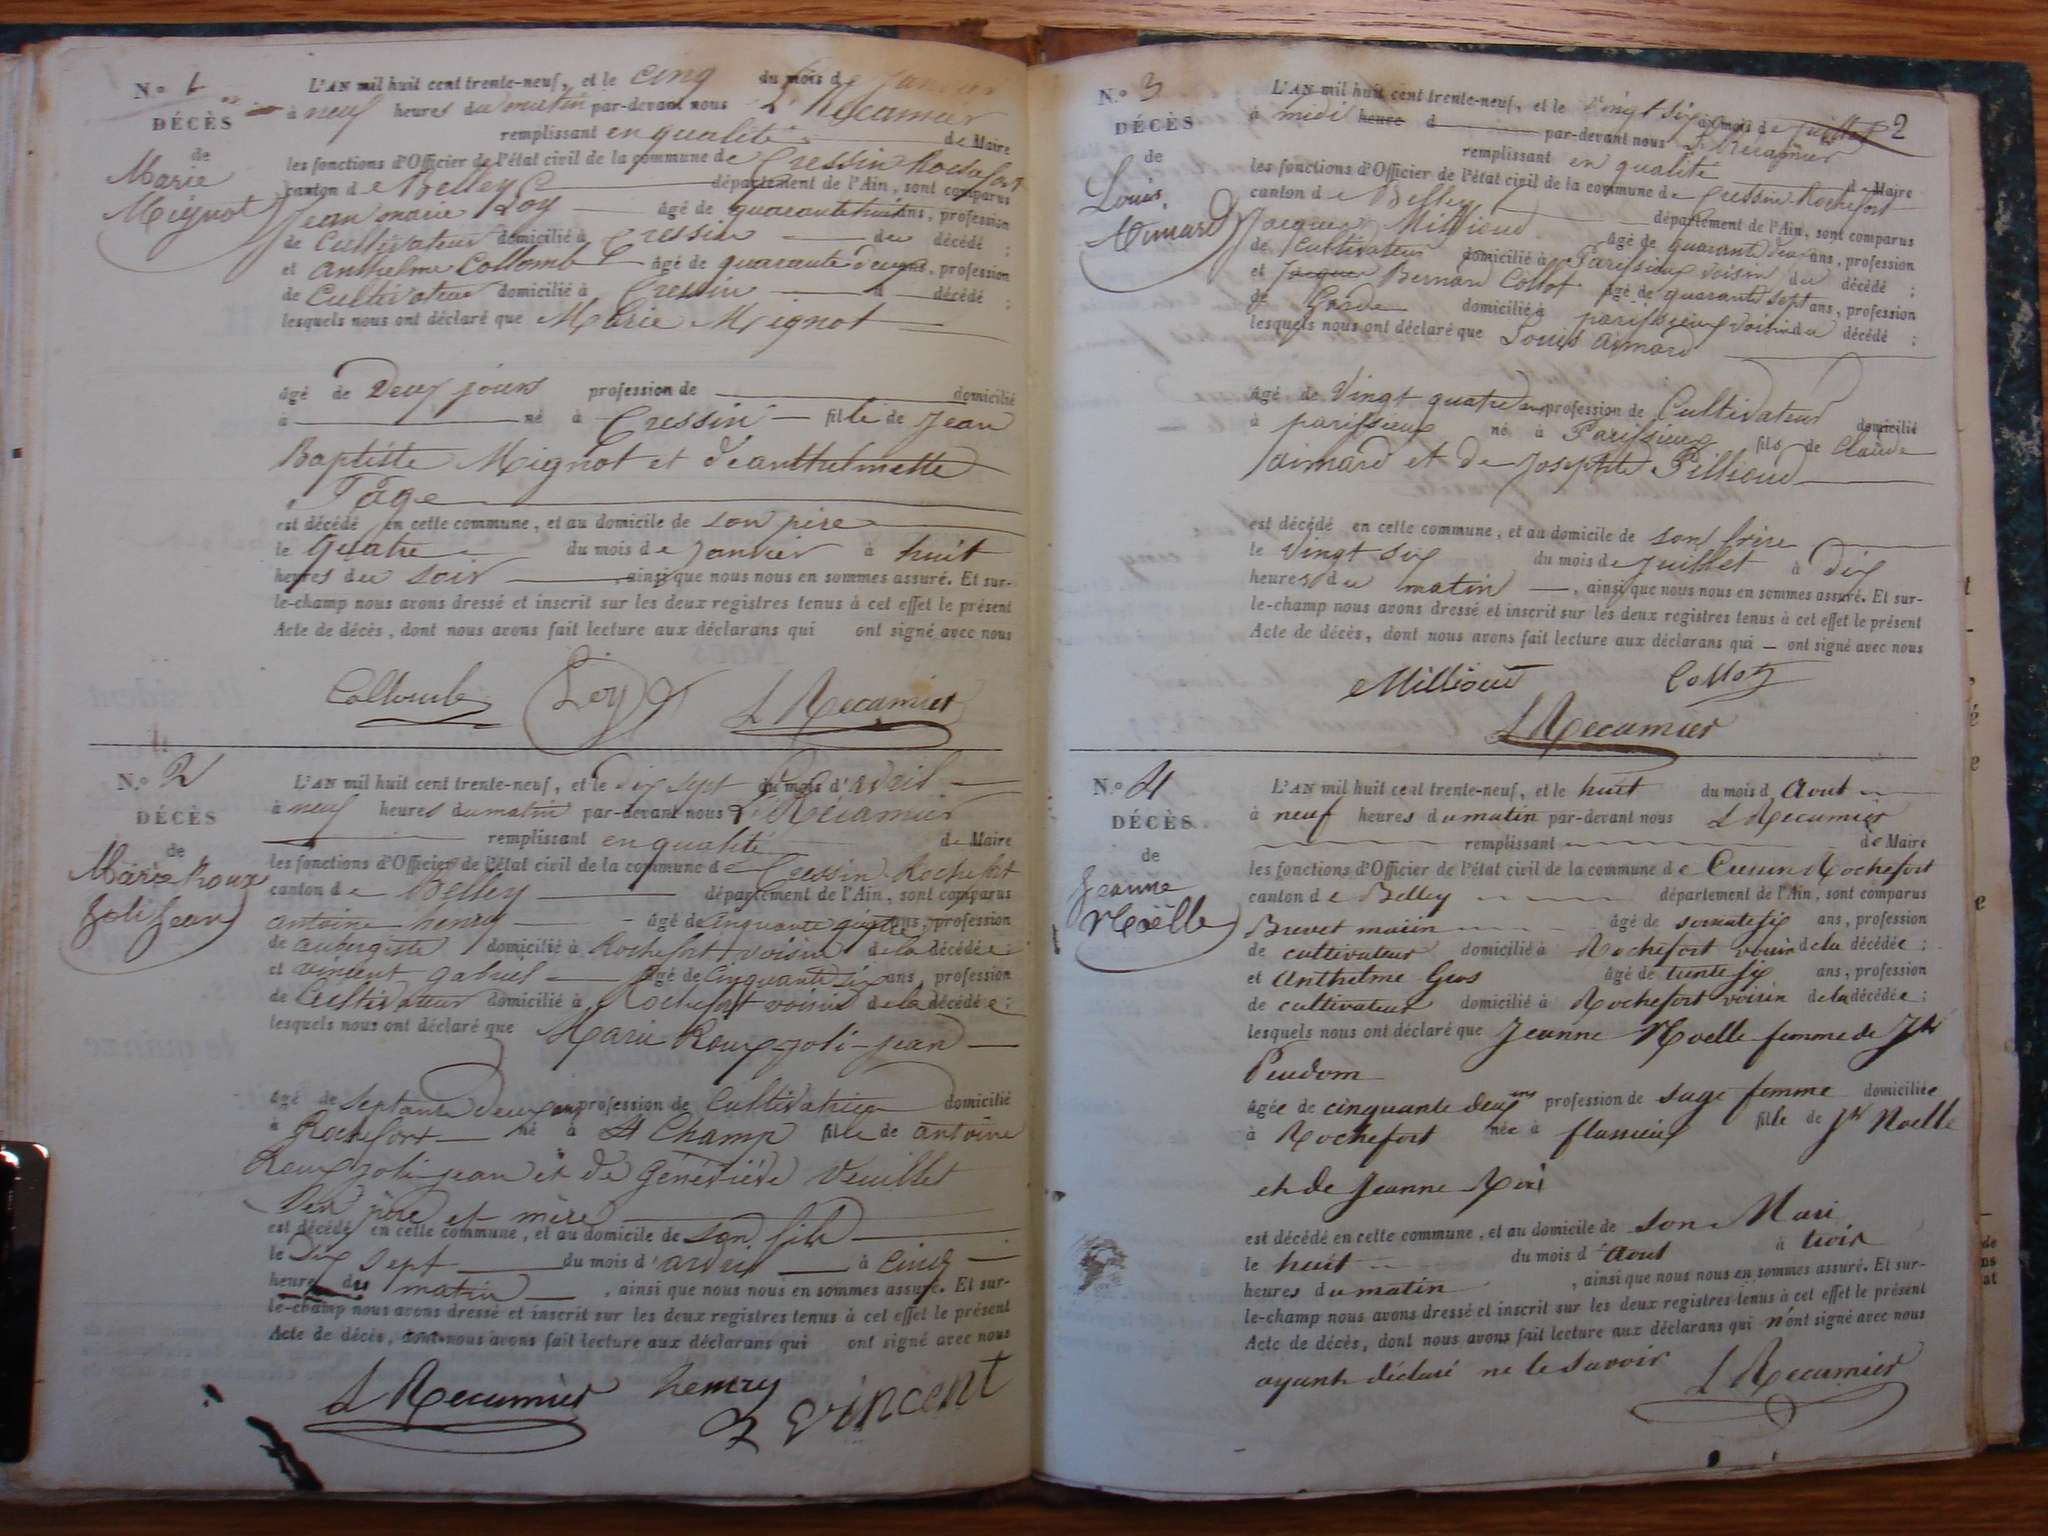 N.o 1
DÉCÈS
de
Marie
Mignot
L'AN mil huit cent trente-neuf, et le cinq du mois de Janvier
à neuf heures du matin par-devant nous L Récamier
remplissant en qualité de Maire
les fonctions d'Officier de l'état civil de la commune de Cressin Rochefort
canton de Belley département de l'Ain, sont comparus
Jean marie Loy âgé de quarante huit ans, profession
de Cultivateur domicilié à Cressin du décédé ;
et Anthelme Collomb âgé de quarante deux ans, profession
de Cultivateur domicilié à Cressin d décédé ;
lesquels nous ont déclaré que Marie Mignot
âgé de Deux jours profession de domicilié
à né à Cressin fille de Jean
Baptiste Mignot et d'eanthelmette
Page
est décédé en cette commune, et au domicile de son père
le Quatre du mois de Janvier à huit
heures du soir , ainsi que nous nous en sommes assuré. Et sur-
le-champ nous avons dressé et inscrit sur les deux registres tenus à cet effet le présent
Acte de décès, dont nous avons fait lecture aux déclarans qui ont signé avec nous
Collomb Loy L Recamier
N.o 2
DÉCÈS
de
Marie Roux
Joli Jean
L'AN mil huit cent trente-neuf, et le dix sept du mois d'avril
à neuf heures du matin par-devant nous L Récamier
remplissant en qualité de Maire
les fonctions d'Officier de l'état civil de la commune de Cressin Rochefort
canton de Belley département de l'Ain, sont comparus
antoine henry âgé de cinquante quatre ans, profession
de aubergiste domicilié à Rochefort voisin de la décédée ;
et vincent gabriel âgé de Cinquante six ans, profession
de Cultivateur domicilié à Rochefort voisin de la décédée ;
lesquels nous ont déclaré que Marie Roux-joli-jean
âgé de septante deux ans profession de Cultivatrice domicilié
à Rochefort né à St Champ fille de antoine
Roux joli-jean et de Généviève Veuillet
Ses père et mère
est décédé en cette commune, et au domicile de son fils
le Dix sept du mois d'avril à Cinq
heures du matin , ainsi que nous nous en sommes assuré. Et sur-
le-champ nous avons dressé et inscrit sur les deux registres tenus à cet effet le présent
Acte de décès, dont nous avons fait lecture aux déclarans qui ont signé avec nous
L Recamier henry
vincent
2
N.o 3
DÉCÈS
de
Louis
Aimard
L'AN mil huit cent trente-neuf, et le Vingt six du mois de juillet
à midi heure d par-devant nous L Récamier
remplissant en qualité de Maire
les fonctions d'Officier de l'état civil de la commune de Cressin Rochefort
canton de Belley département de l'Ain, sont comparus
Jacques Millioud âgé de quarante deux ans, profession
de Cultivateur domicilié à Parissieux voisin du décédé ;
et Jacques Bernard Collot âgé de quarante sept ans, profession
de Garde domicilié à parissieux voisin du décédé ;
lesquels nous ont déclaré que Louis aimard
âgé de Vingt quatre ans profession de Cultivateur domicilié
à parissieux né à Parissieux fils de Claude
aimard et de Josephte Pillioud
est décédé en cette commune, et au domicile de son frère
le vingt six du mois de juillet à dix
heures du matin , ainsi que nous nous en sommes assuré. Et sur-
le-champ nous avons dressé et inscrit sur les deux registres tenus à cet effet le présent
Acte de décès, dont nous avons fait lecture aux déclarans qui ont signé avec nous
Millioud Collot
L Recamier
N.o 4
DÉCÈS
de
Jeanne
Noëlle
L'AN mil huit cent trente-neuf, et le huit du mois d Aout
à neuf heures du matin par-devant nous L Recamier
remplissant de Maire
les fonctions d'Officier de l'état civil de la commune de Cressin Rochefort
canton de Belley département de l'Ain, sont comparus
Brevet marin âgé de ans, profession
de cultivateur domicilié à Rochefort voisin de la décédée ;
et Anthelme Gros âgé de trente six ans, profession
de cultivateur domicilié à Rochefort voisin de la décédée ;
lesquels nous ont déclaré que Jeanne Noelle femme de Jh
Peudom
âgée de cinquante deux ans profession de sage femme domiciliée
à Rochefort née à flassieux fille de Jh Noelle
et de Jeanne
est décédé en cette commune, et au domicile de son Mari
le huit du mois d'Aout à trois
heures du matin , ainsi que nous nous en sommes assuré. Et sur-
le-champ nous avons dressé et inscrit sur les deux registres tenus à cet effet le présent
Acte de décès, dont nous avons fait lecture aux déclarans qui n'ont signé avec nous
ayant déclaré ne le savoir L Recamier